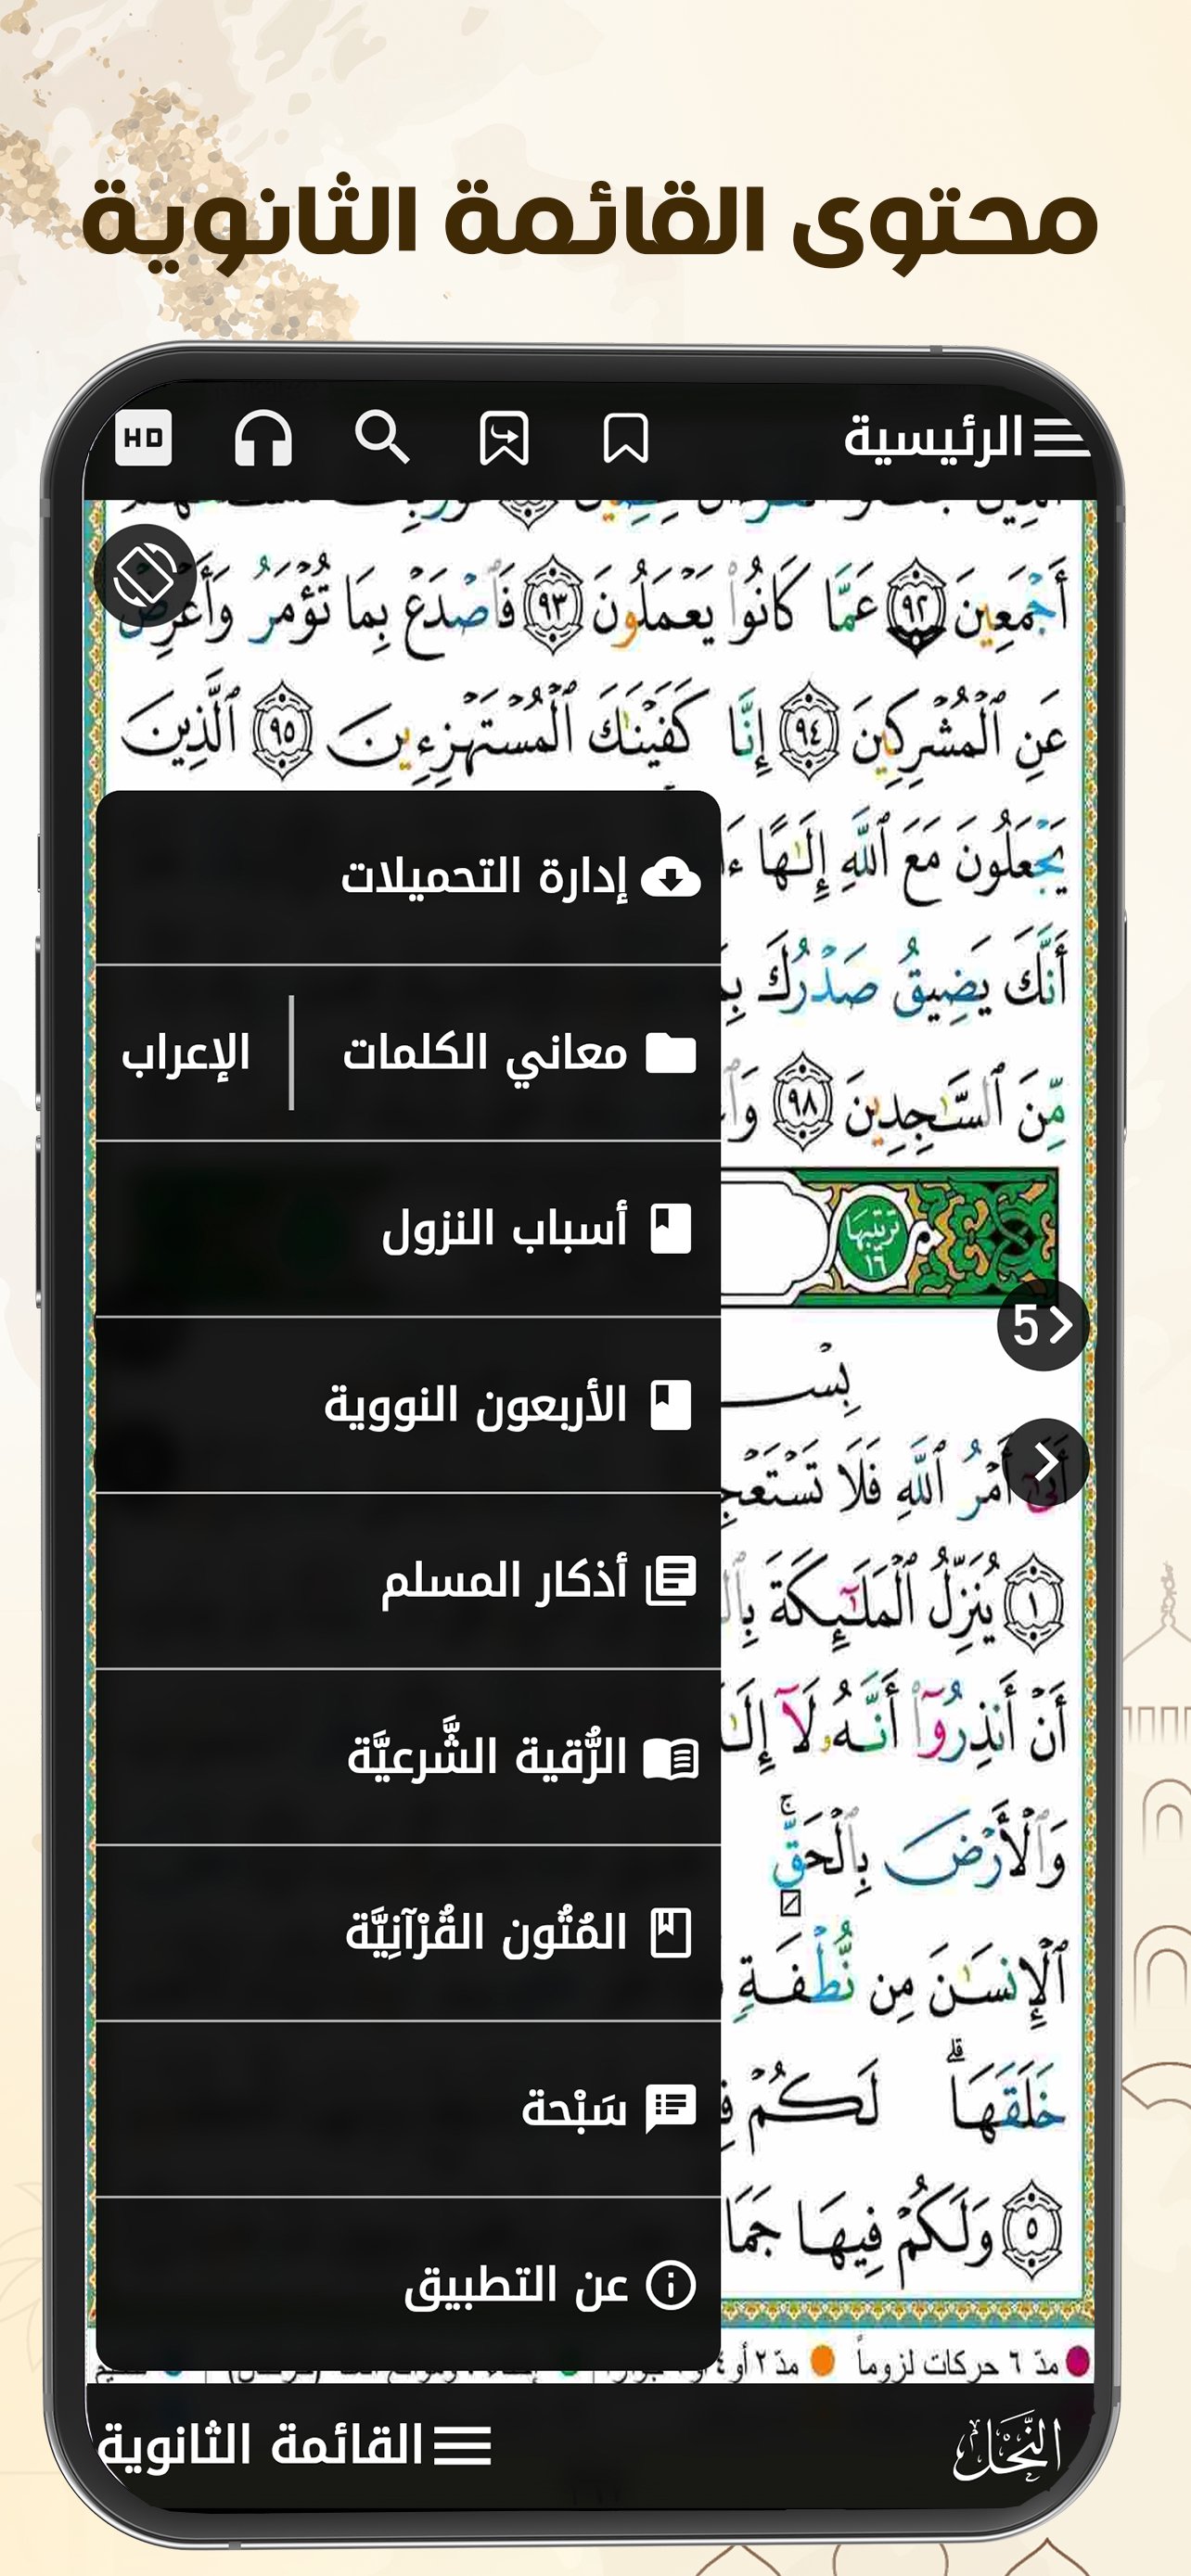 محتوى القائمة الثانوية
الرئيسية
HD
أَجْمَعِينَ ٩٢ عَمَّا كَانُوا۟ يَعْمَلُونَ ٩٣ فَٱصْدَعْ بِمَا تُؤْمَرُ وَأَعْرِضْ
عَنِ ٱلْمُشْرِكِينَ ٩٤ إِنَّا كَفَيْنَٰكَ ٱلْمُسْتَهْزِءِينَ ٩٥ ٱلَّذِينَ
يَجْعَلُونَ مَعَ ٱللَّهِ إِلَٰهًا
أَنَّكَ يَضِيقُ صَدْرُكَ
مِّنَ ٱلسَّٰجِدِينَ ٩٨
ترتيبها
١٦
5
بِسْ
أَتَىٰٓ أَمْرُ ٱللَّهِ فَلَا
١ يُنَزِّلُ ٱلْمَلَٰٓئِكَةَ
أَنْ أَنذِرُوٓا۟ أَنَّهُۥ لَآ
وَٱلْأَرْضَ بِٱلْحَقِّ ۚ
ٱلْإِنسَٰنَ مِن نُّطْفَةٍ
خَلَقَهَا ۗ لَكُمْ
٥ وَلَكُمْ فِيهَا
إدارة التحميلات
معاني الكلمات
الإعراب
أسباب النزول
الأربعون النووية
أذكار المسلم
الرُّقية الشَّرعيَّة
المُتُون القُرْآنِيَّة
سَبْحة
عن التطبيق
مدّ ٦ حركات لزوماً مدّ ٢ أو ٤
النَّحْل
القائمة الثانوية